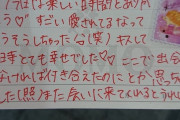 は楽しい時間とあり
う♡♡すごい愛されてるなって
そうそうしちゃったな(笑)そして
日寺とても幸せでした♡ここで出会
なければ付き合えたのにとか思っち
した(照)また会いに来てくれるとうれし